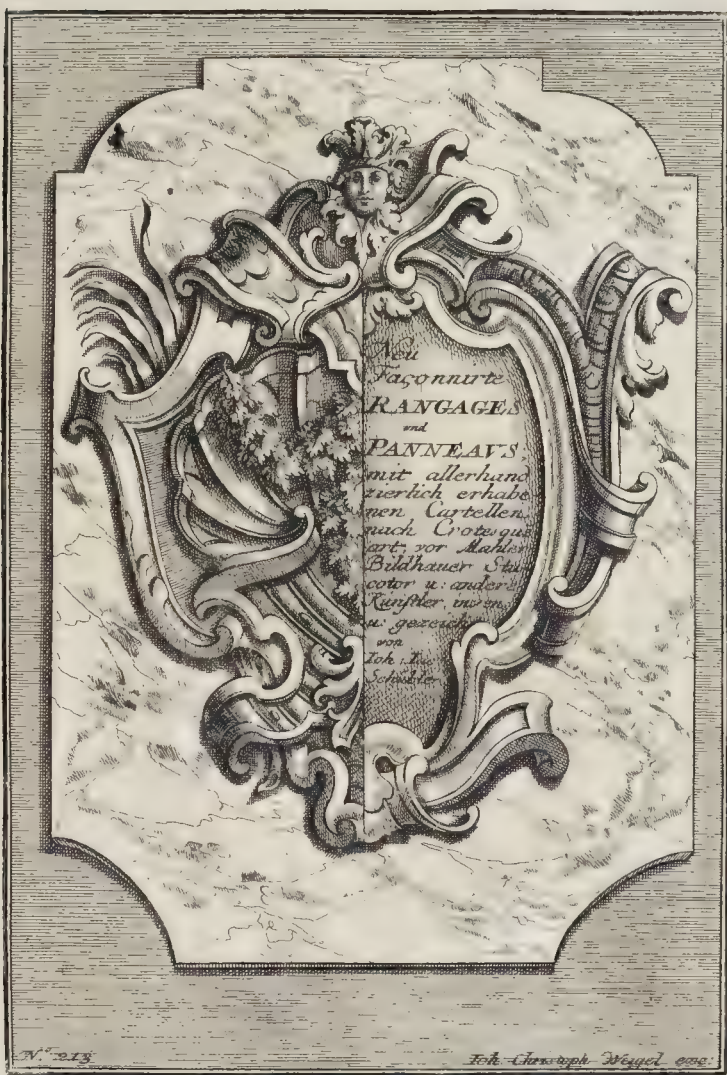 Neu
Façonnirte
RANGAGES
und
PANNEAVS.
mit allerhand
zierlich erhabe
nen Cartellen
nach Crotesque
art, vor Mahler
Bildhauer Stu
cotor u: andere
Künstler, inven
u: gezeich
von
Ioh: Jac
Schübler
N.° 213
Ioh. Christoph Weigel exc: